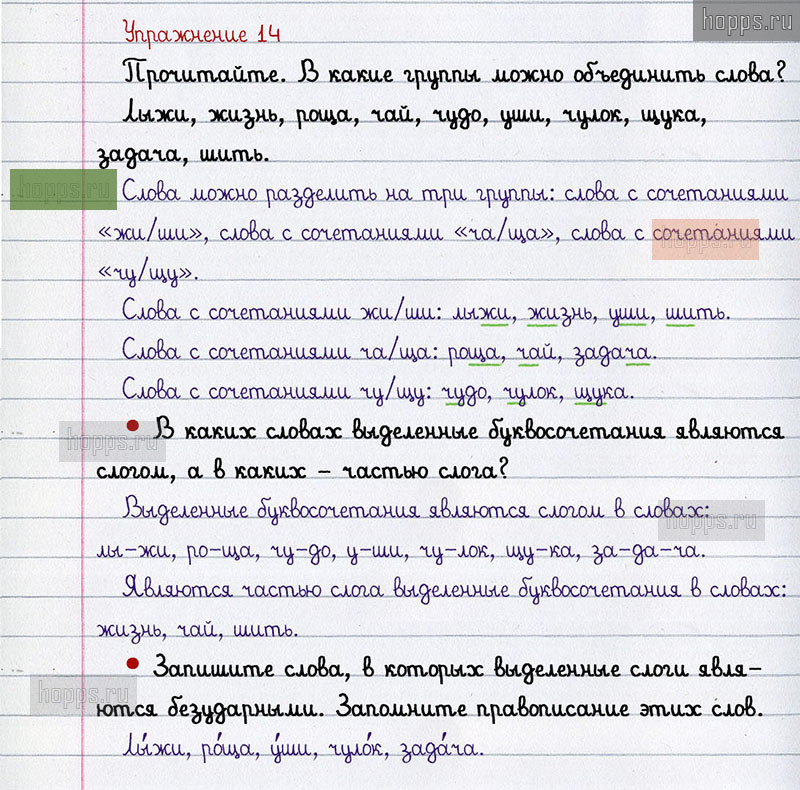 hopps.ru
Упражнение 14
Прочитайте. В какие группы можно объединить слова?
Лыжи, жизнь, роща, чай, чудо, уши, чулок, щука,
задача, шить.
hopps.ru
Слова можно разделить на три группы: слова с сочетаниями
«жи/ши», слова с сочетаниями «ча/ща», слова с сочетаниями
hopps.ru
«чу/щу».
Слова с сочетаниями жи/ши: лыжи, жизнь, уши, шить.
Слова с сочетаниями ча/ща: роща, чай, задача.
Слова с сочетаниями чу/щу: чудо, чулок, щука.
• В каких словах выделенные буквосочетания являются
hopps.ru
слогом, а в каких – частью слога?
Выделенные буквосочетания являются слогом в словах:
hopps.ru
лы-жи, ро-ща, чу-до, у-ши, чу-лок, щу-ка, за-да-ча.
Являются частью слога выделенные буквосочетания в словах:
жизнь, чай, шить.
• Запишите слова, в которых выделенные слоги явля-
hopps.ru
ются безударными. Запомните правописание этих слов.
Лы́жи, ро́ща, у́ши, чуло́к, зада́ча.